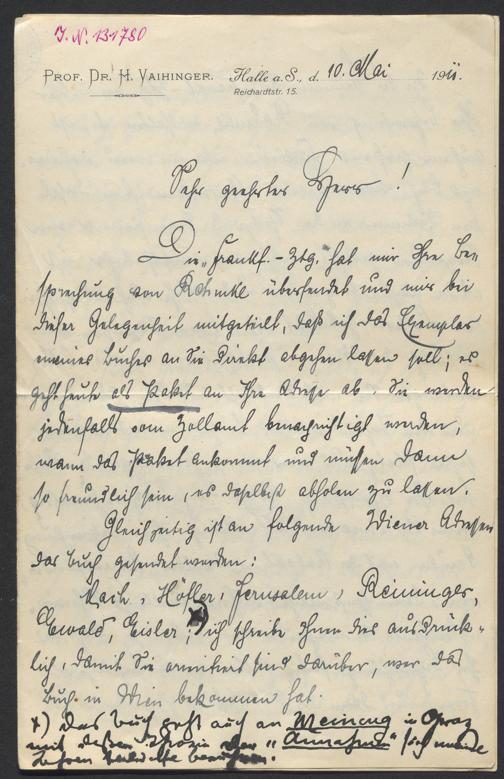 J. N. 131780
PROF. DR. H. VAIHINGER. Halle a. S., d. 10. Mai 1911.
Reichardtstr. 15.
Sehr geehrter Herr!
Die „Frankf.-Ztg. hat mir Ihre Be-
sprechung von übersendet und mir bei
dieser Gelegenheit mitgeteilt, daß ich das Exemplar
meines Buches an Sie direkt abgehen lassen soll; es
geht heute als Paket an Ihre Adresse ab. Sie werden
jedenfalls vom Zollamt benachrichtigt werden,
wann das Paket ankommt und müssen dann
so freundlich sein, es daselbst abholen zu lassen.
Gleichzeitig ist an folgende Wiener Adressen
das Buch gesendet worden:
Mach, Höfler, Jerusalem, Reininger,
Ewald, Eisler; x) ich schreibe Ihnen dies ausdrück-
lich, damit Sie orientiert sind darüber, wer das
Buch in Wien bekommen hat.
x) Das Buch geht auch an Meinong in Graz
mit dessen Theorie der „Annahmen" sich meine